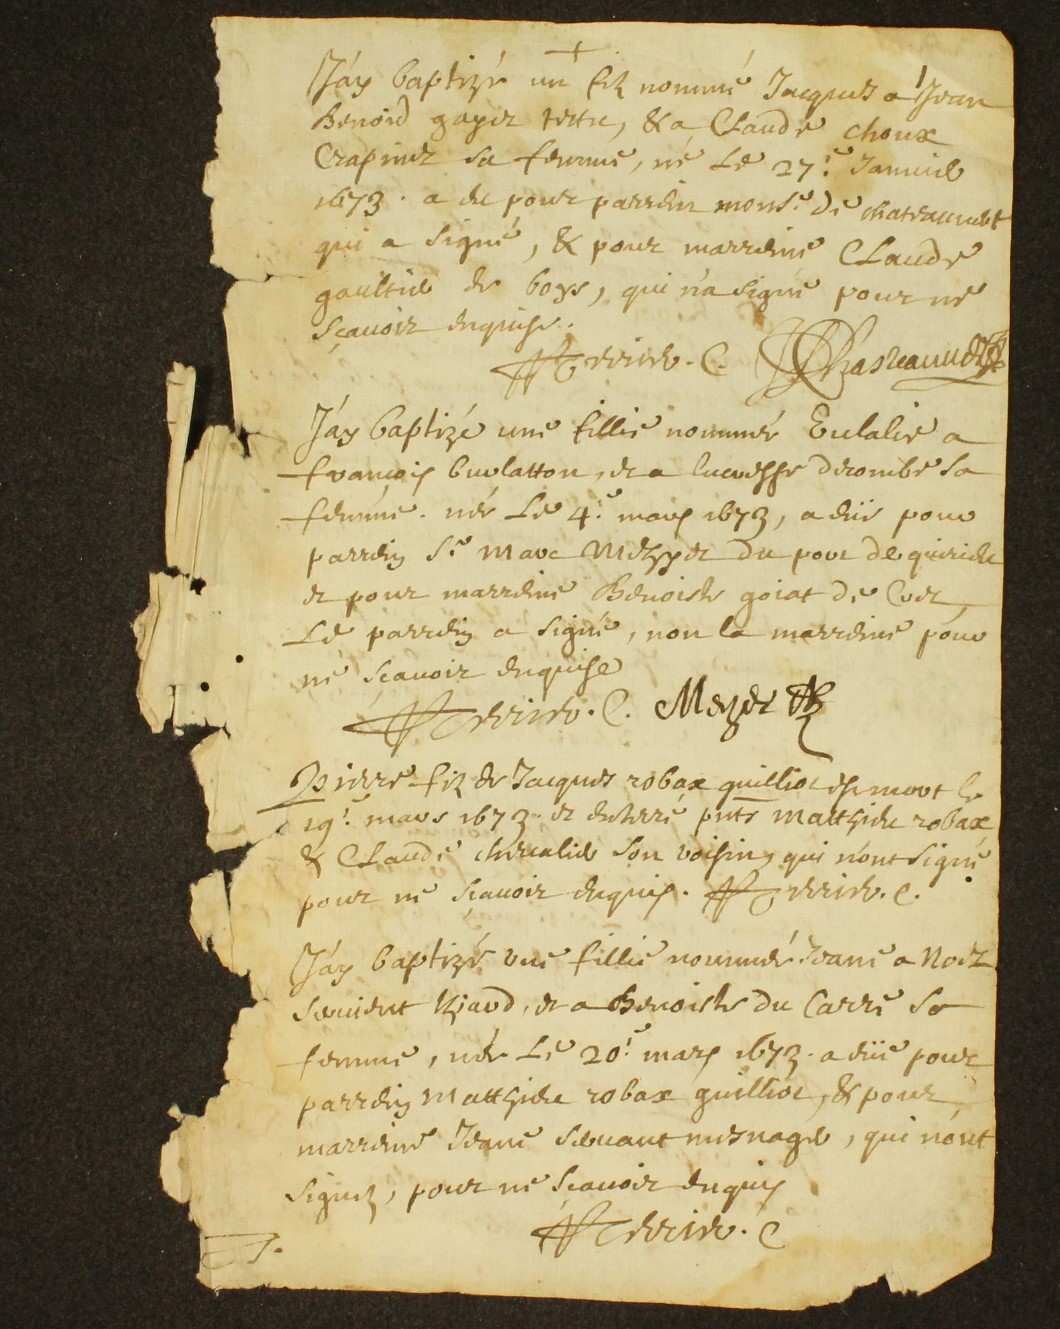 Jáy baptizé un fiz nommé Jacques a Jean
Benoid gayet tette, & a Claude choux
Crapinet sa femme, né Le 27.e Januier
1673. a eu pour parrein monsr. de chateauuert
qui a signé, & pour marreine Claude
gaultier de boys, qui n'a signé pour ne
sçauoir enquise.
Terrier. C.
Jáy baptizé une fillie nommée Eulalie a
françois
femme. née Le 4.e mars 1673, a eüe pour
parrein Sr. Marc Mezyer du port de quirieu
et pour marreine Benoiste goiat de
Le parrein a signé, non la marreine pour
ne sçauoir enquise
Terrier. C. Mezier
Pierre fiz de Jacques robax guilliot est mort le
19.e mars 1673. et enterré pnts matthieu robax
& Claude cheualier son voisin, qui n'ont signé
pour ne sçauoir enquis. Terrier. C.
Jáy baptizé une fillie nommée Jeane a Noez
et a Benoiste du Carre sa
femme, née Le 20.e mars 1673. a eüe pour
parrein Matthieu robax guilliot, & pour
marreine Jeane seruant mesnage, qui n'ont
signez, pour ne sçauoir enquis
Terrier. C